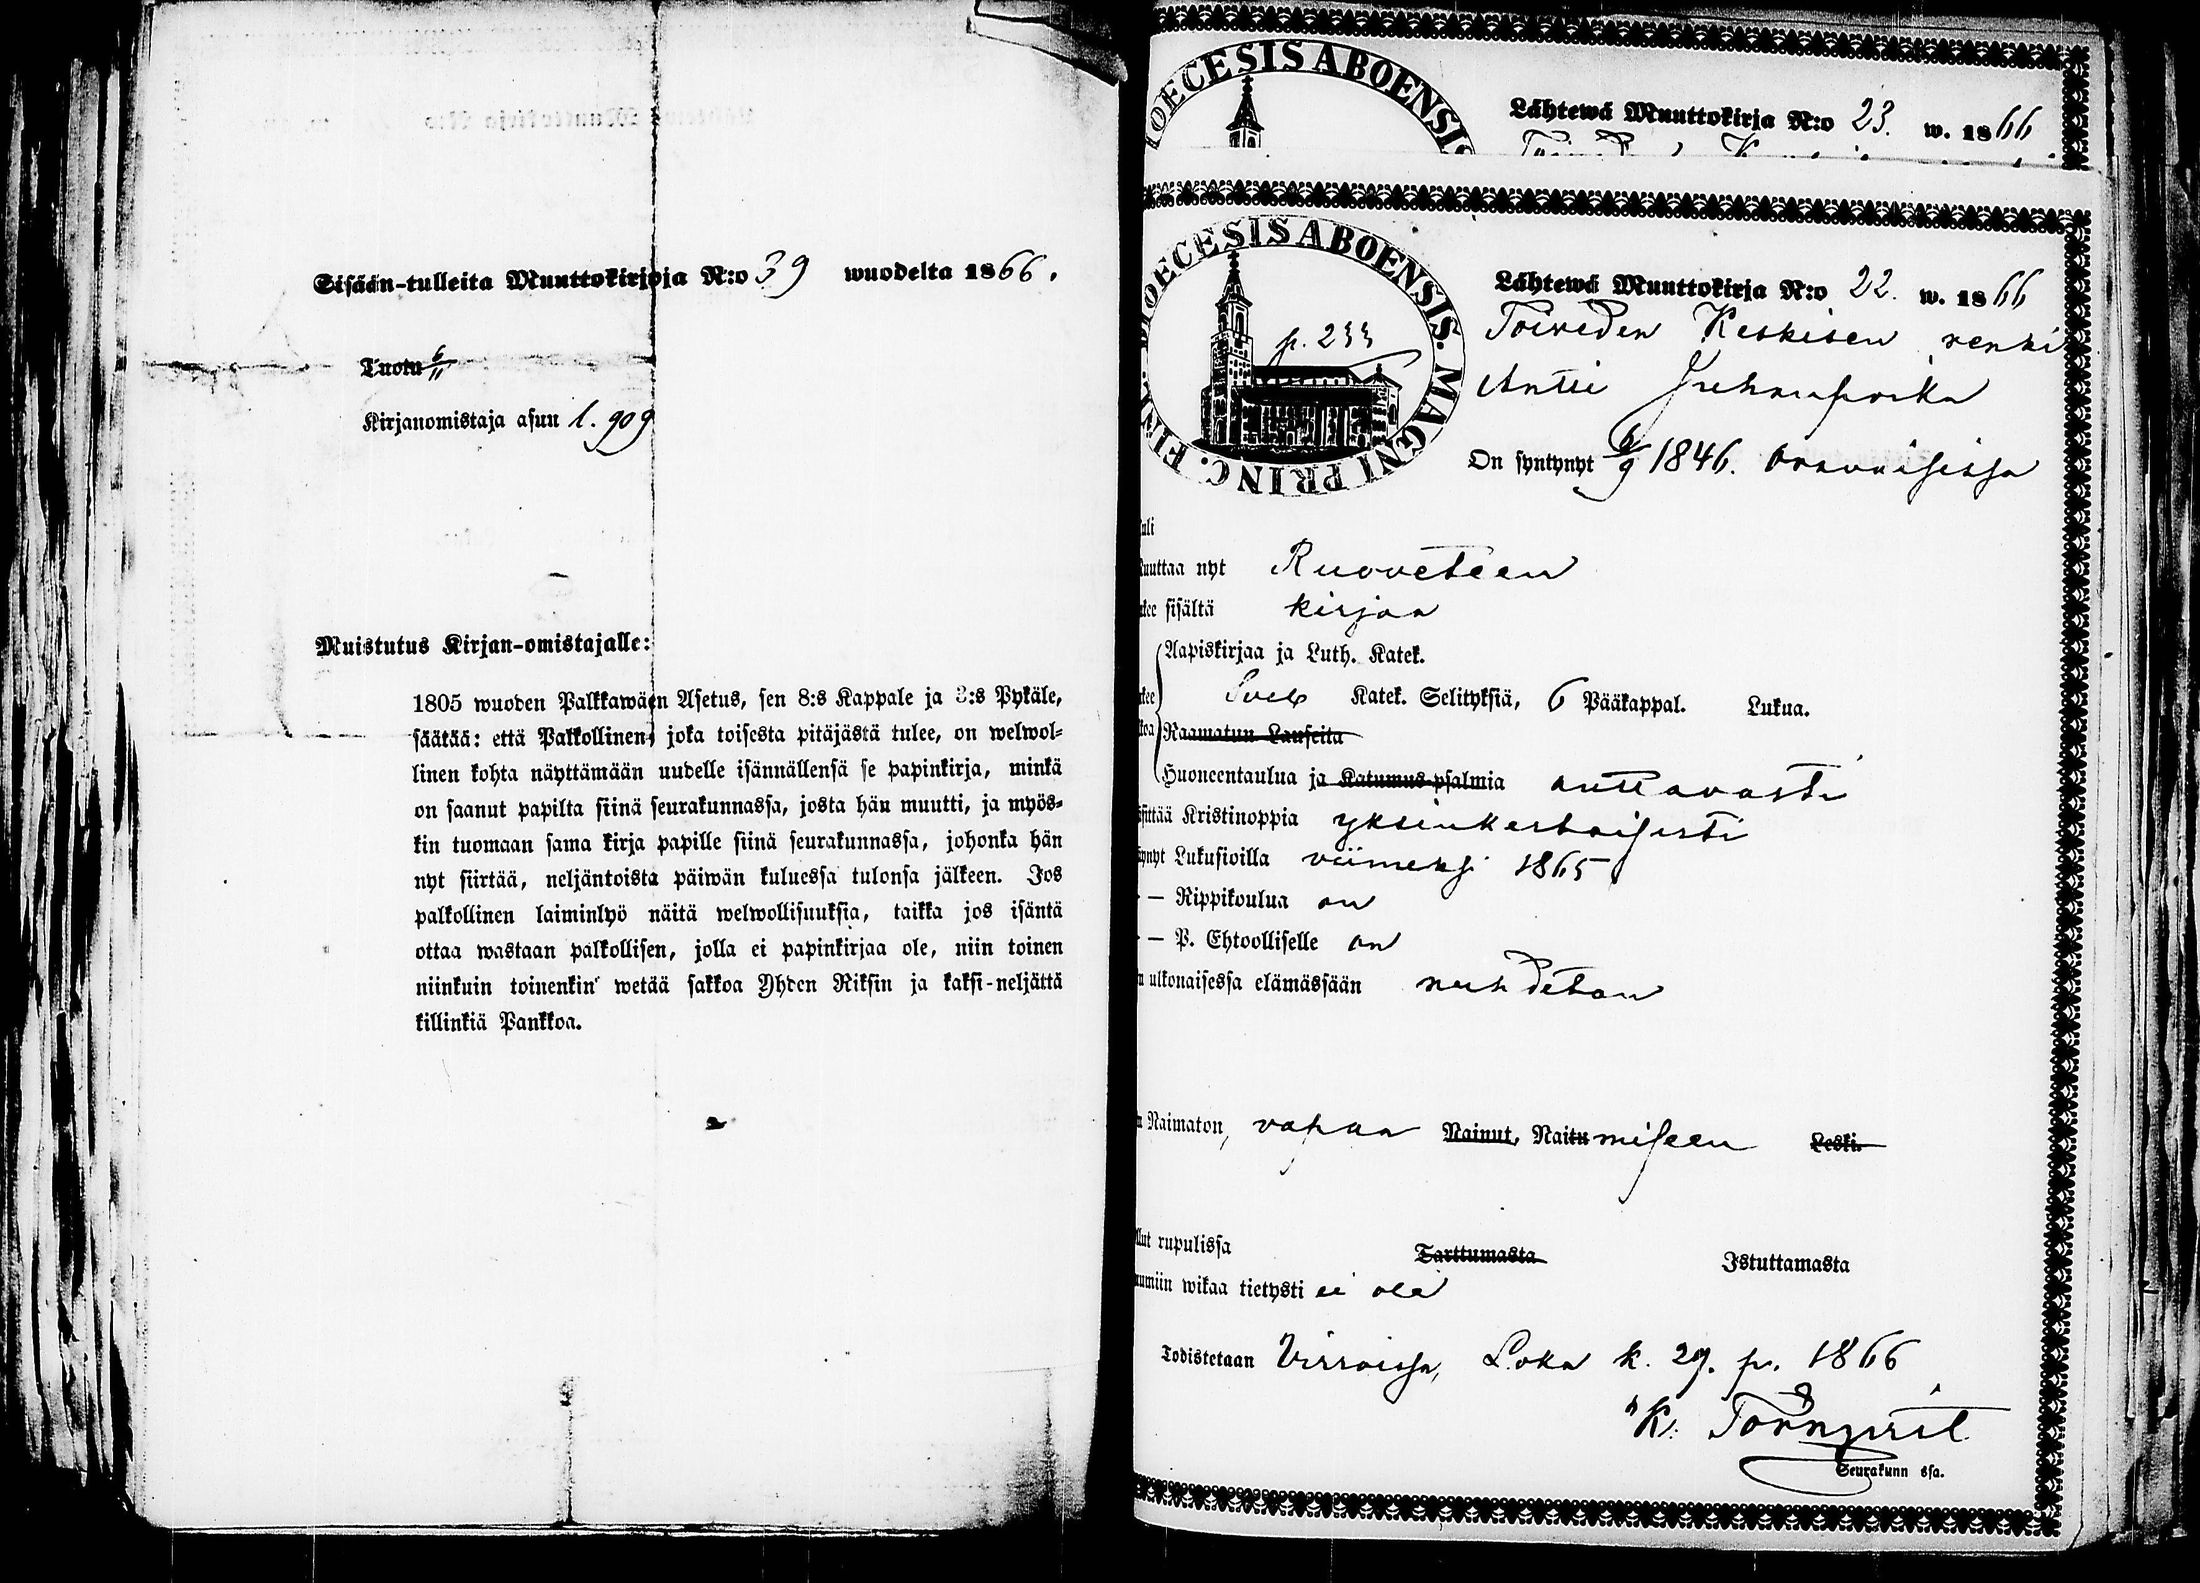 Sisään-tulleita Muuttokirjoja N:o 39 wuodelta 1866.
Tuotu 6/11
Kirjanomistaja asuu l. 909
Muistutus Kirjan-omistajalle:
1805 wuoden Palkkawäen Asetus, sen 8:s Kappale ja 3:s Pykäle,
säätää: että Palkollinen, joka toisesta pitäjästä tulee, on welwol-
linen kohta näyttämään uudelle isännällensä se papinkirja, minkä
on saanut papilta siinä seurakunnassa, josta hän muutti, ja myös-
kin tuomaan sama kirja papille siinä seurakunnassa, johonka hän
nyt siirtää, neljäntoista päiwän kuluessa tulonsa jälkeen. Jos
palkollinen laiminlyö näitä welwollisuuksia, taikka jos isäntä
ottaa wastaan palkollisen, jolla ei papinkirjaa ole, niin toinen
niinkuin toinenkin wetää sakkoa Yhden Riksin ja kaksi-neljättä
killinkiä Pankkoa.
DIOECESIS ABOENSIS
Lähtewä Muuttokirja N:o 23. w. 1866
DIOECESIS ABOENSIS. MAGNI PRINC. FINL.
p. 233
Lähtewä Muuttokirja N:o 22. w. 1866
Toiveden Keskisen renki
Antti Juhanpoika
On syntynyt 6/9 1846.
uli
uuttaa nyt Ruoveteen
kee sisältä kirjaa
Aapiskirjaa ja Luth. Katek.
kee Sveb Katek. Selityksiä, 6 Pääkappal. Lukua.
koa Raamatun Lauseita
Huoneentaulua ja Katumus-psalmia auttavasti
sittää Kristinoppia yksinkertaisesti
ynyt Lukusioilla viimeksi 1865
— Rippikoulua on
— P. Ehtoolliselle on
n ulkonaisessa elämässään nuhdeton
n Naimaton, vapaa Nainut, Naitu miseen Leski.
llut rupulissa Tarttumasta Istuttamasta
umiin wikaa tietysti ei ole
Todistetaan Virroissa, Loka k. 29. p. 1866
K. Törnqvist
Seurakunn ssa.